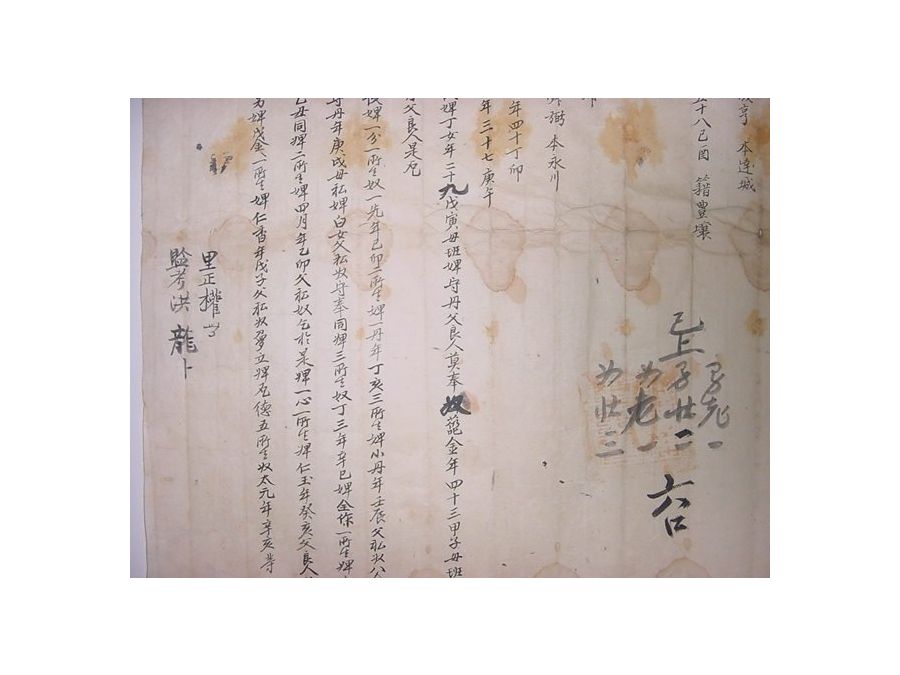 亨 本達城
五十八己酉 籍豊壤
已上
男老一
男壯二
女老一
女壯三
六口
本永川
年四十丁卯
年三十七庚午
婢丁女年二十九戊寅母班婢守丹父良人莫奉 奴金年四十三甲子母班
父良人是
婢一分一所生奴一先年己卯二所生婢一丹年丁亥三所生婢小丹年壬辰父私奴八
守丹年庚戌母私婢白女父私奴守奉同婢三所生奴丁三年辛巳婢全一所生婢
乙丑同婢二所生婢四月年乙卯父私奴乞於是婢一心一所生婢仁玉年癸亥父良人
婢戊金一所生婢仁香年戊子父私奴立婢德五所生奴太元年辛亥等
里正權
監考洪龍卜